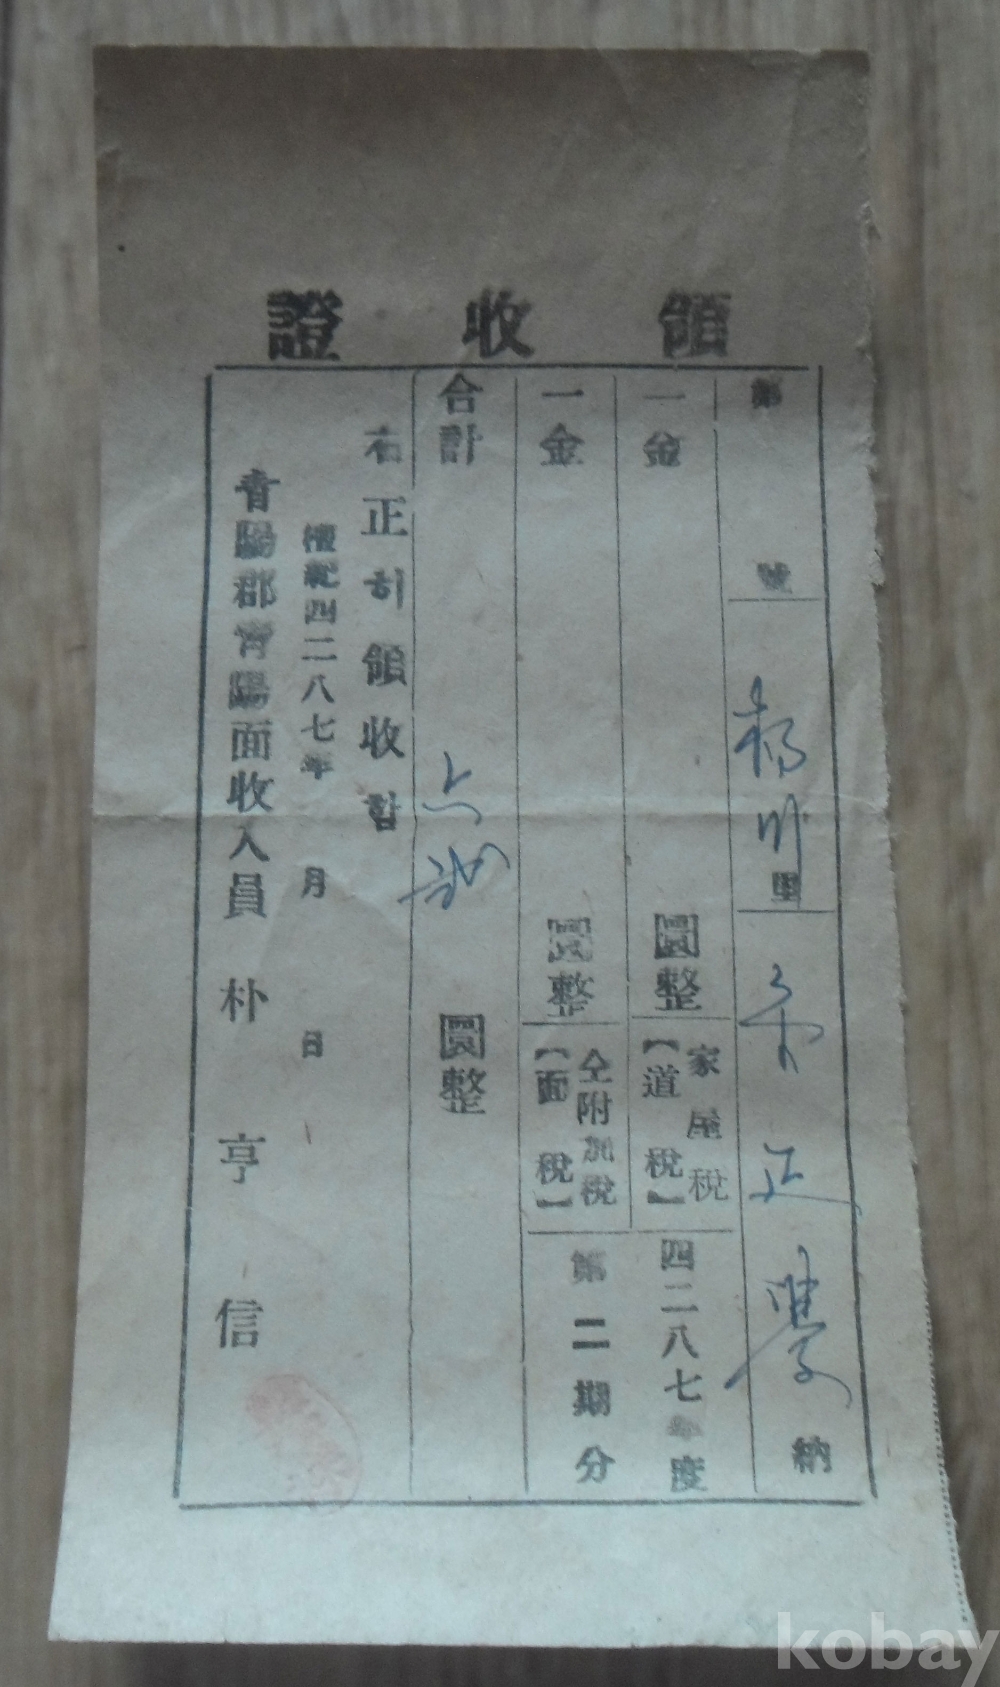 領收證
第 號
里
納
一金 圜整
家屋稅
【道稅】
四二八七年度
一金 圜整
仝附加稅
【面稅】
第二期分
合計 圜整
右正히領收함
檀紀四二八七年 月 日
靑陽郡靑陽面收入員 朴亨信
kobay